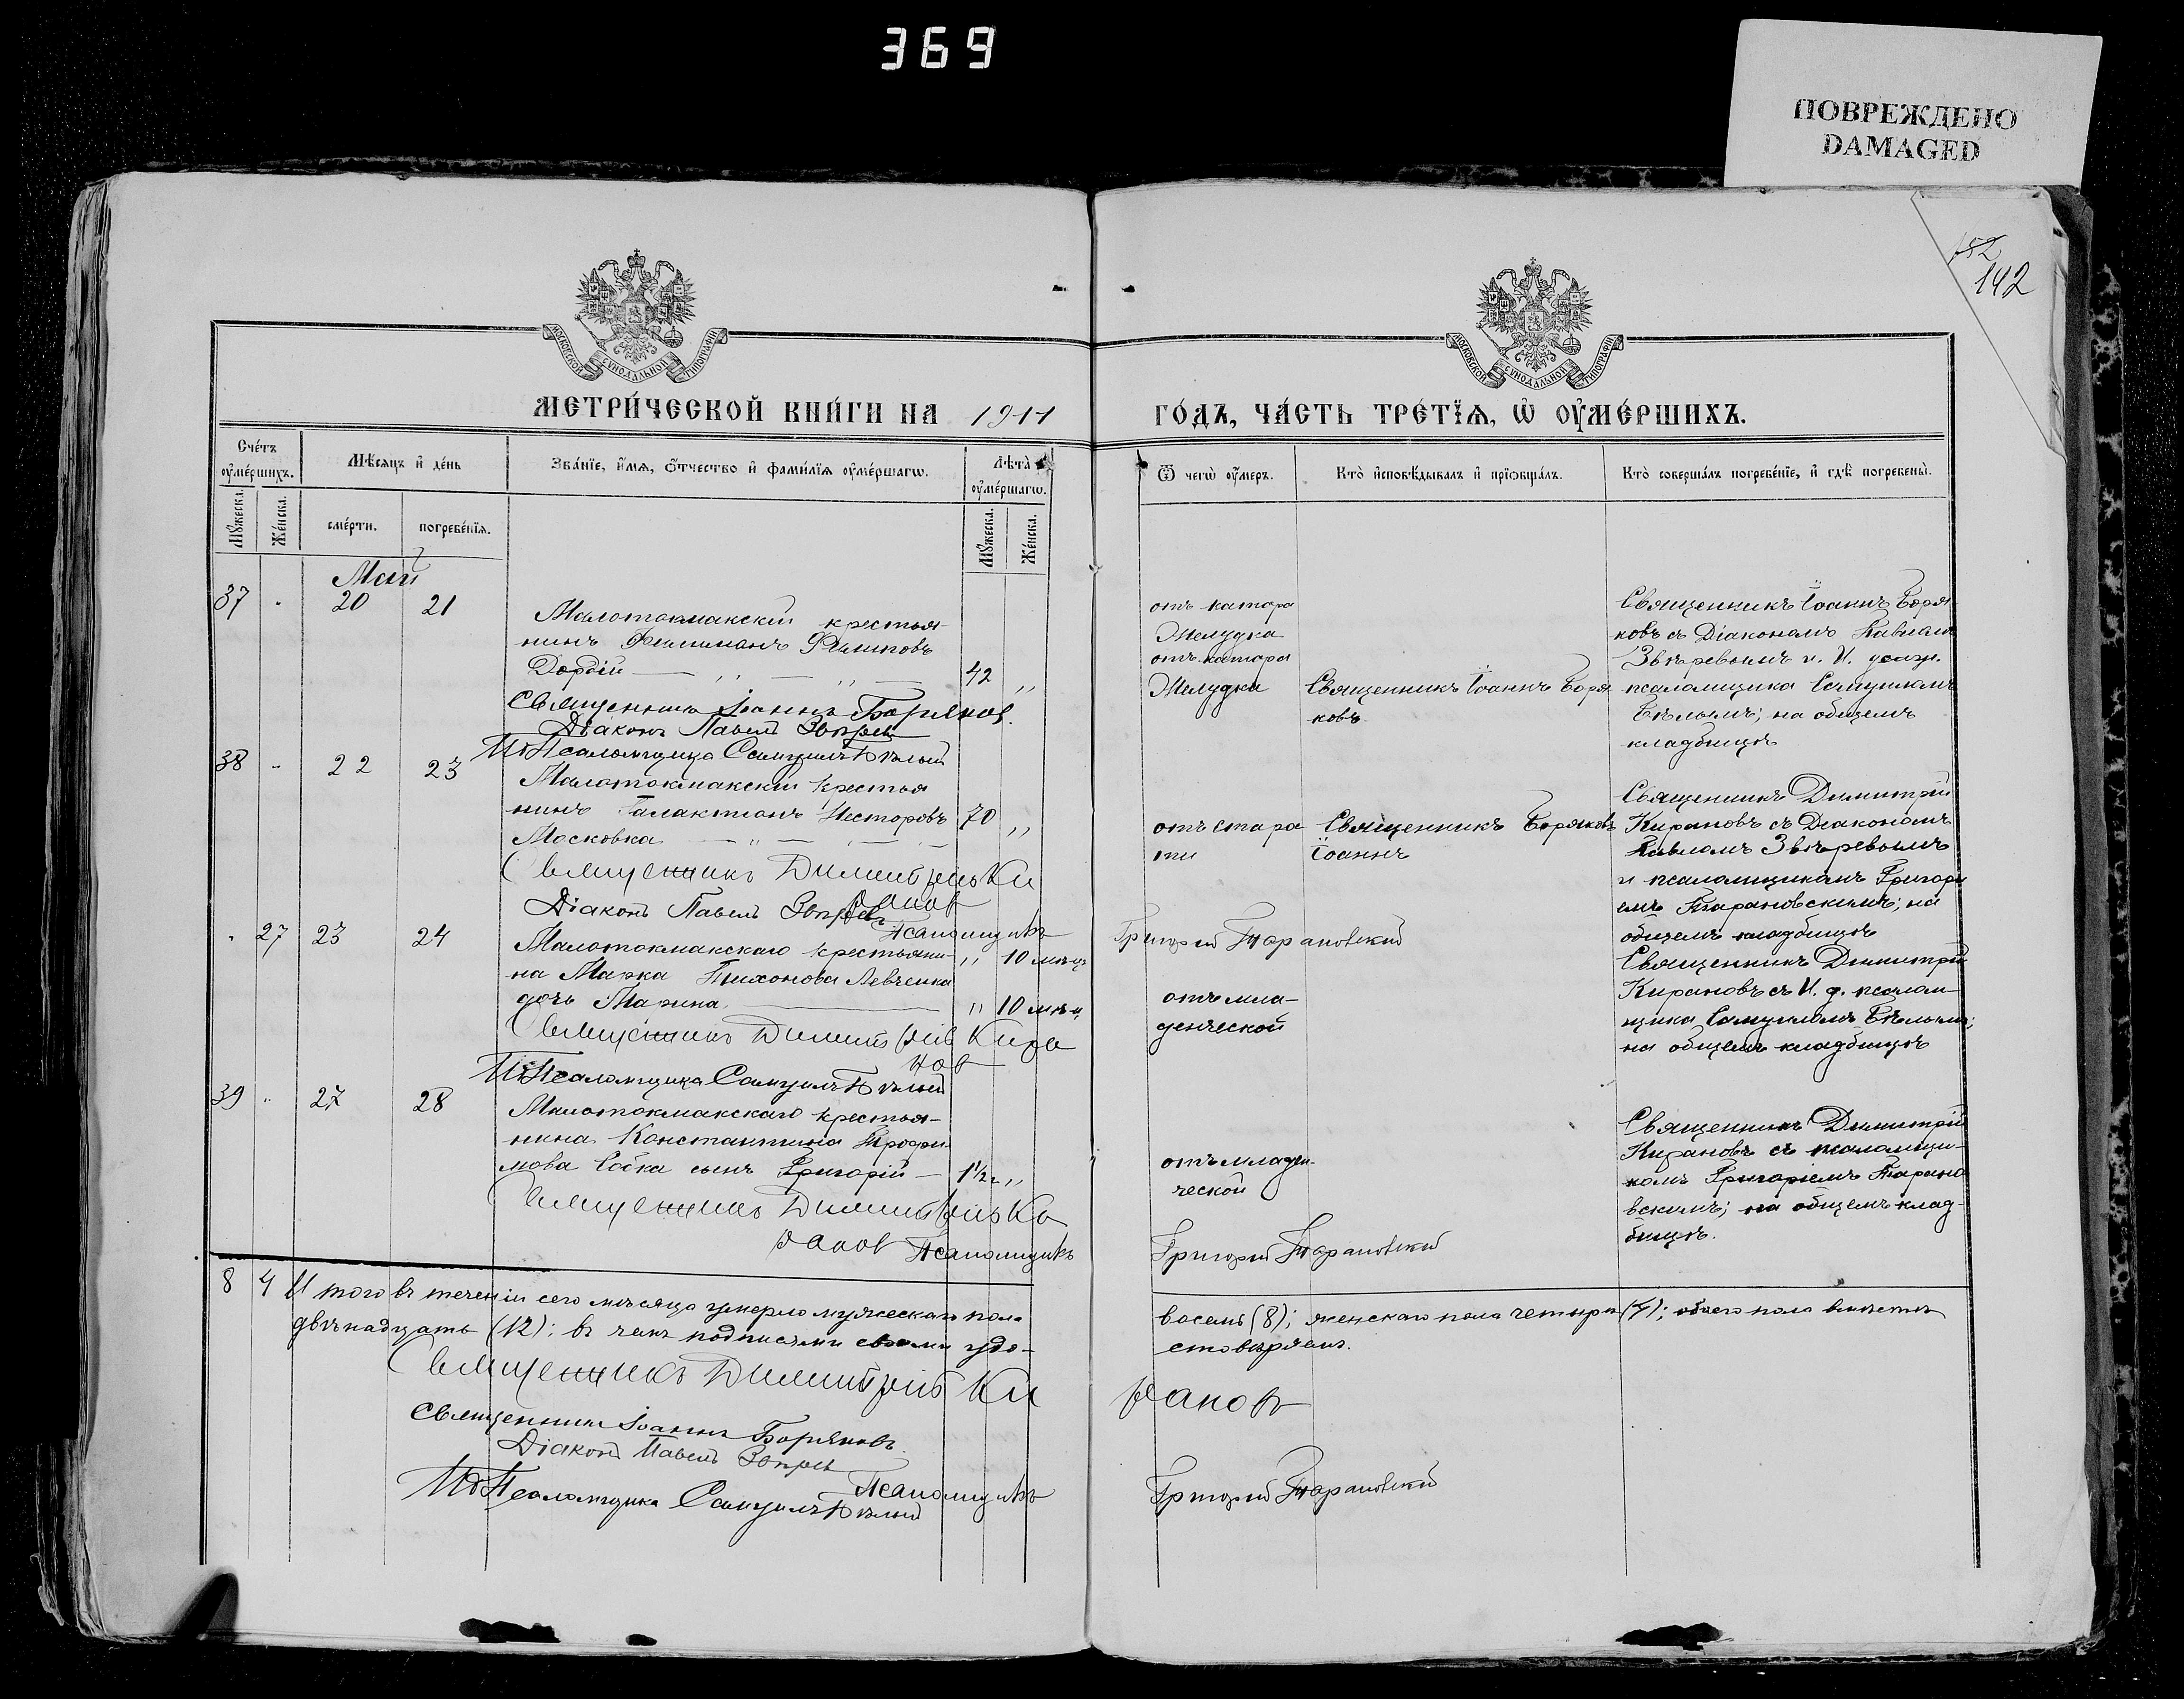 369
ПОВРЕЖДЕНО
DAMAGED
152
142
МОСКОВСКОЙ СѴНОДАЛЬНОЙ ТИПОГРАФІИ
МОСКОВСКОЙ СѴНОДАЛЬНОЙ ТИПОГРАФІИ
МЕТРИ́ЧЕСКОЙ КНИ́ГИ НА 1911
ГО́ДЪ, ЧА́СТЬ ТРЕ́ТЇѦ, Ѡ҆ ОУ҆МЕ́РШИХЪ.
Сче́тъ оу҆ме́ршихъ.
Мѣ́сяцъ и҆ де́нь
Зва́нїе, и҆́мѧ, ѻ҆́тчество и҆ фами́лїѧ оу҆ме́ршагѡ.
Лѣ́та оу҆ме́ршагѡ.
Ѿ чегѡ̀ оу҆́меръ.
Кто̀ и҆сповѣ́дывалъ и҆ прїѡбща́лъ.
Кто̀ соверша́лъ погребе́нїе, и҆ гдѣ̀ погребены̀.
Мꙋ́жеска.
Же́нска.
сме́рти.
погребе́нїѧ.
Мꙋ́жеска.
Же́нска.
Май
37 " 20 21
Малотокмакскій крестья-
нинъ Филимонъ Филиповъ
Дорбій — " — " — 42 "
Священникъ Іоаннъ Боряковъ.
Діаконъ Павелъ Звѣревъ
ИдПсаломщика Самуилъ Бѣлый
отъ катара
Желудка
отъ катара
Желудка
Священникъ Іоаннъ Боря
ковъ
Священникъ Іоаннъ Боря
ковъ съ Діакономъ Павлом
Звѣревымъ и. И. долж.
псаломщика Самуиломъ
Бѣлымъ; на общемъ
кладбищѣ
38 " 22 23
Малотокмакскій крестья
нинъ Галактіонъ Несторовъ 70 "
Московка — " — " —
Священникъ Димитрій Ки
рановъ
Діаконъ Павелъ Звѣревъ
Псаломщикъ
Григорій Тарановскій
отъ старо
сти
Священникъ Боряковъ
Іоаннъ
Священникъ Димитрій
Кирановъ съ Діакономъ
Павломъ Звѣревымъ
и псаломщикомъ Григорі
емъ Тарановскимъ; на
общемъ кладбищѣ
" 27 23 24
Малотокмакскаго крестьяни- " 10 мѣ-ц
на Марка Тихонова Левченка
дочь Марина — " 10 мѣ-ц
Священникъ Димитрій Кира
нов
ИдПсаломщика Самуилъ Бѣлый
отъ мла-
денческой
Священникъ Димитрій
Кирановъ съ И. д. псалом-
щика Самуиломъ Бѣлымъ;
на общемъ кладбищѣ
39 " 27 28
Малотокмакскаго крестья-
нина Константина Трофи
мова Собка сынъ Григорій — 1½ г "
Священникъ Димитрій Ки
рановъ Псаломщикъ
Григорій Тарановскій
отъ младен-
ческой
Священникъ Димитрій
Кирановъ съ псаломщи-
комъ Григоріемъ Тарано
вскимъ; на общемъ клад-
бищѣ.
8 4 Итого въ теченіи сего мѣсяца умерло мужескаго пола
восемь (8); женскаго пола четыре (4); обоего пола вмѣстѣ
двѣнадцать (12); въ чемъ подписями своими удо-
стовѣряемъ.
Священникъ Димитрій Ки
рановъ
Священникъ Іоаннъ Боряковъ.
Діаконъ Павелъ Звѣревъ
Псаломщикъ
Григорій Тарановскій
ИдПсаломщика Самуилъ Бѣлый